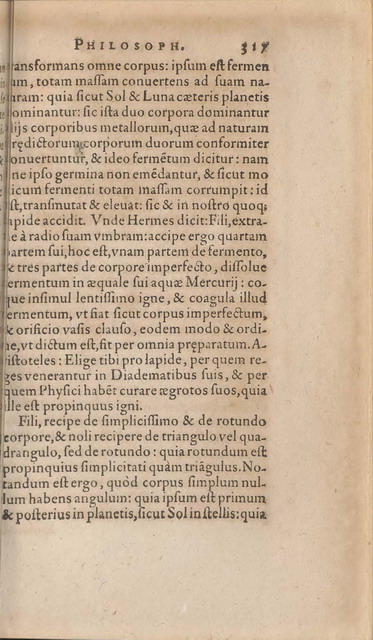 PHILOSOPH. 317
ransformans omne corpus: ipsum est fermen
um, totam massam conuertens ad suam na-
uram: quia sicut Sol & Luna cæteris planetis
ominantur: sic ista duo corpora dominantur
lijs corporibus metallorum, quæ ad naturam
rędictorum corporum duorum conformiter
onuertuntur, & ideo fermẽtum dicitur: nam
ne ipso germina non emẽdantur, & sicut mo
icum fermenti totam massam corrumpit: id
st, transmutat & eleuat: sic & in nostro quoq;
apide accidit. Vnde Hermes dicit: Fili, extra-
e à radio suam vmbram: accipe ergo quartam
artem sui, hoc est, vnam partem de fermento,
& tres partes de corpore imperfecto, dissolue
ermentum in æquale sui aquæ Mercurij: co-
que insimul lentissimo igne, & coagula illud
ermentum, vt fiat sicut corpus imperfectum,
& orificio vasis clauso, eodem modo & ordi-
ne, vt dictum est, fit per omnia pręparatum. A-
ristoteles: Elige tibi pro lapide, per quem re-
ges venerantur in Diadematibus suis, & per
quem Physici habẽt curare ægrotos suos, quia
ille est propinquus igni.
Fili, recipe de simplicissimo & de rotundo
corpore, & noli recipere de triangulo vel qua-
drangulo, sed de rotundo: quia rotundum est
propinquius simplicitati quàm triãgulus. No-
tandum est ergo, quòd corpus simplum nul-
lum habens angulum: quia ipsum est primum
& posterius in planetis, sicut Sol in stellis: quia